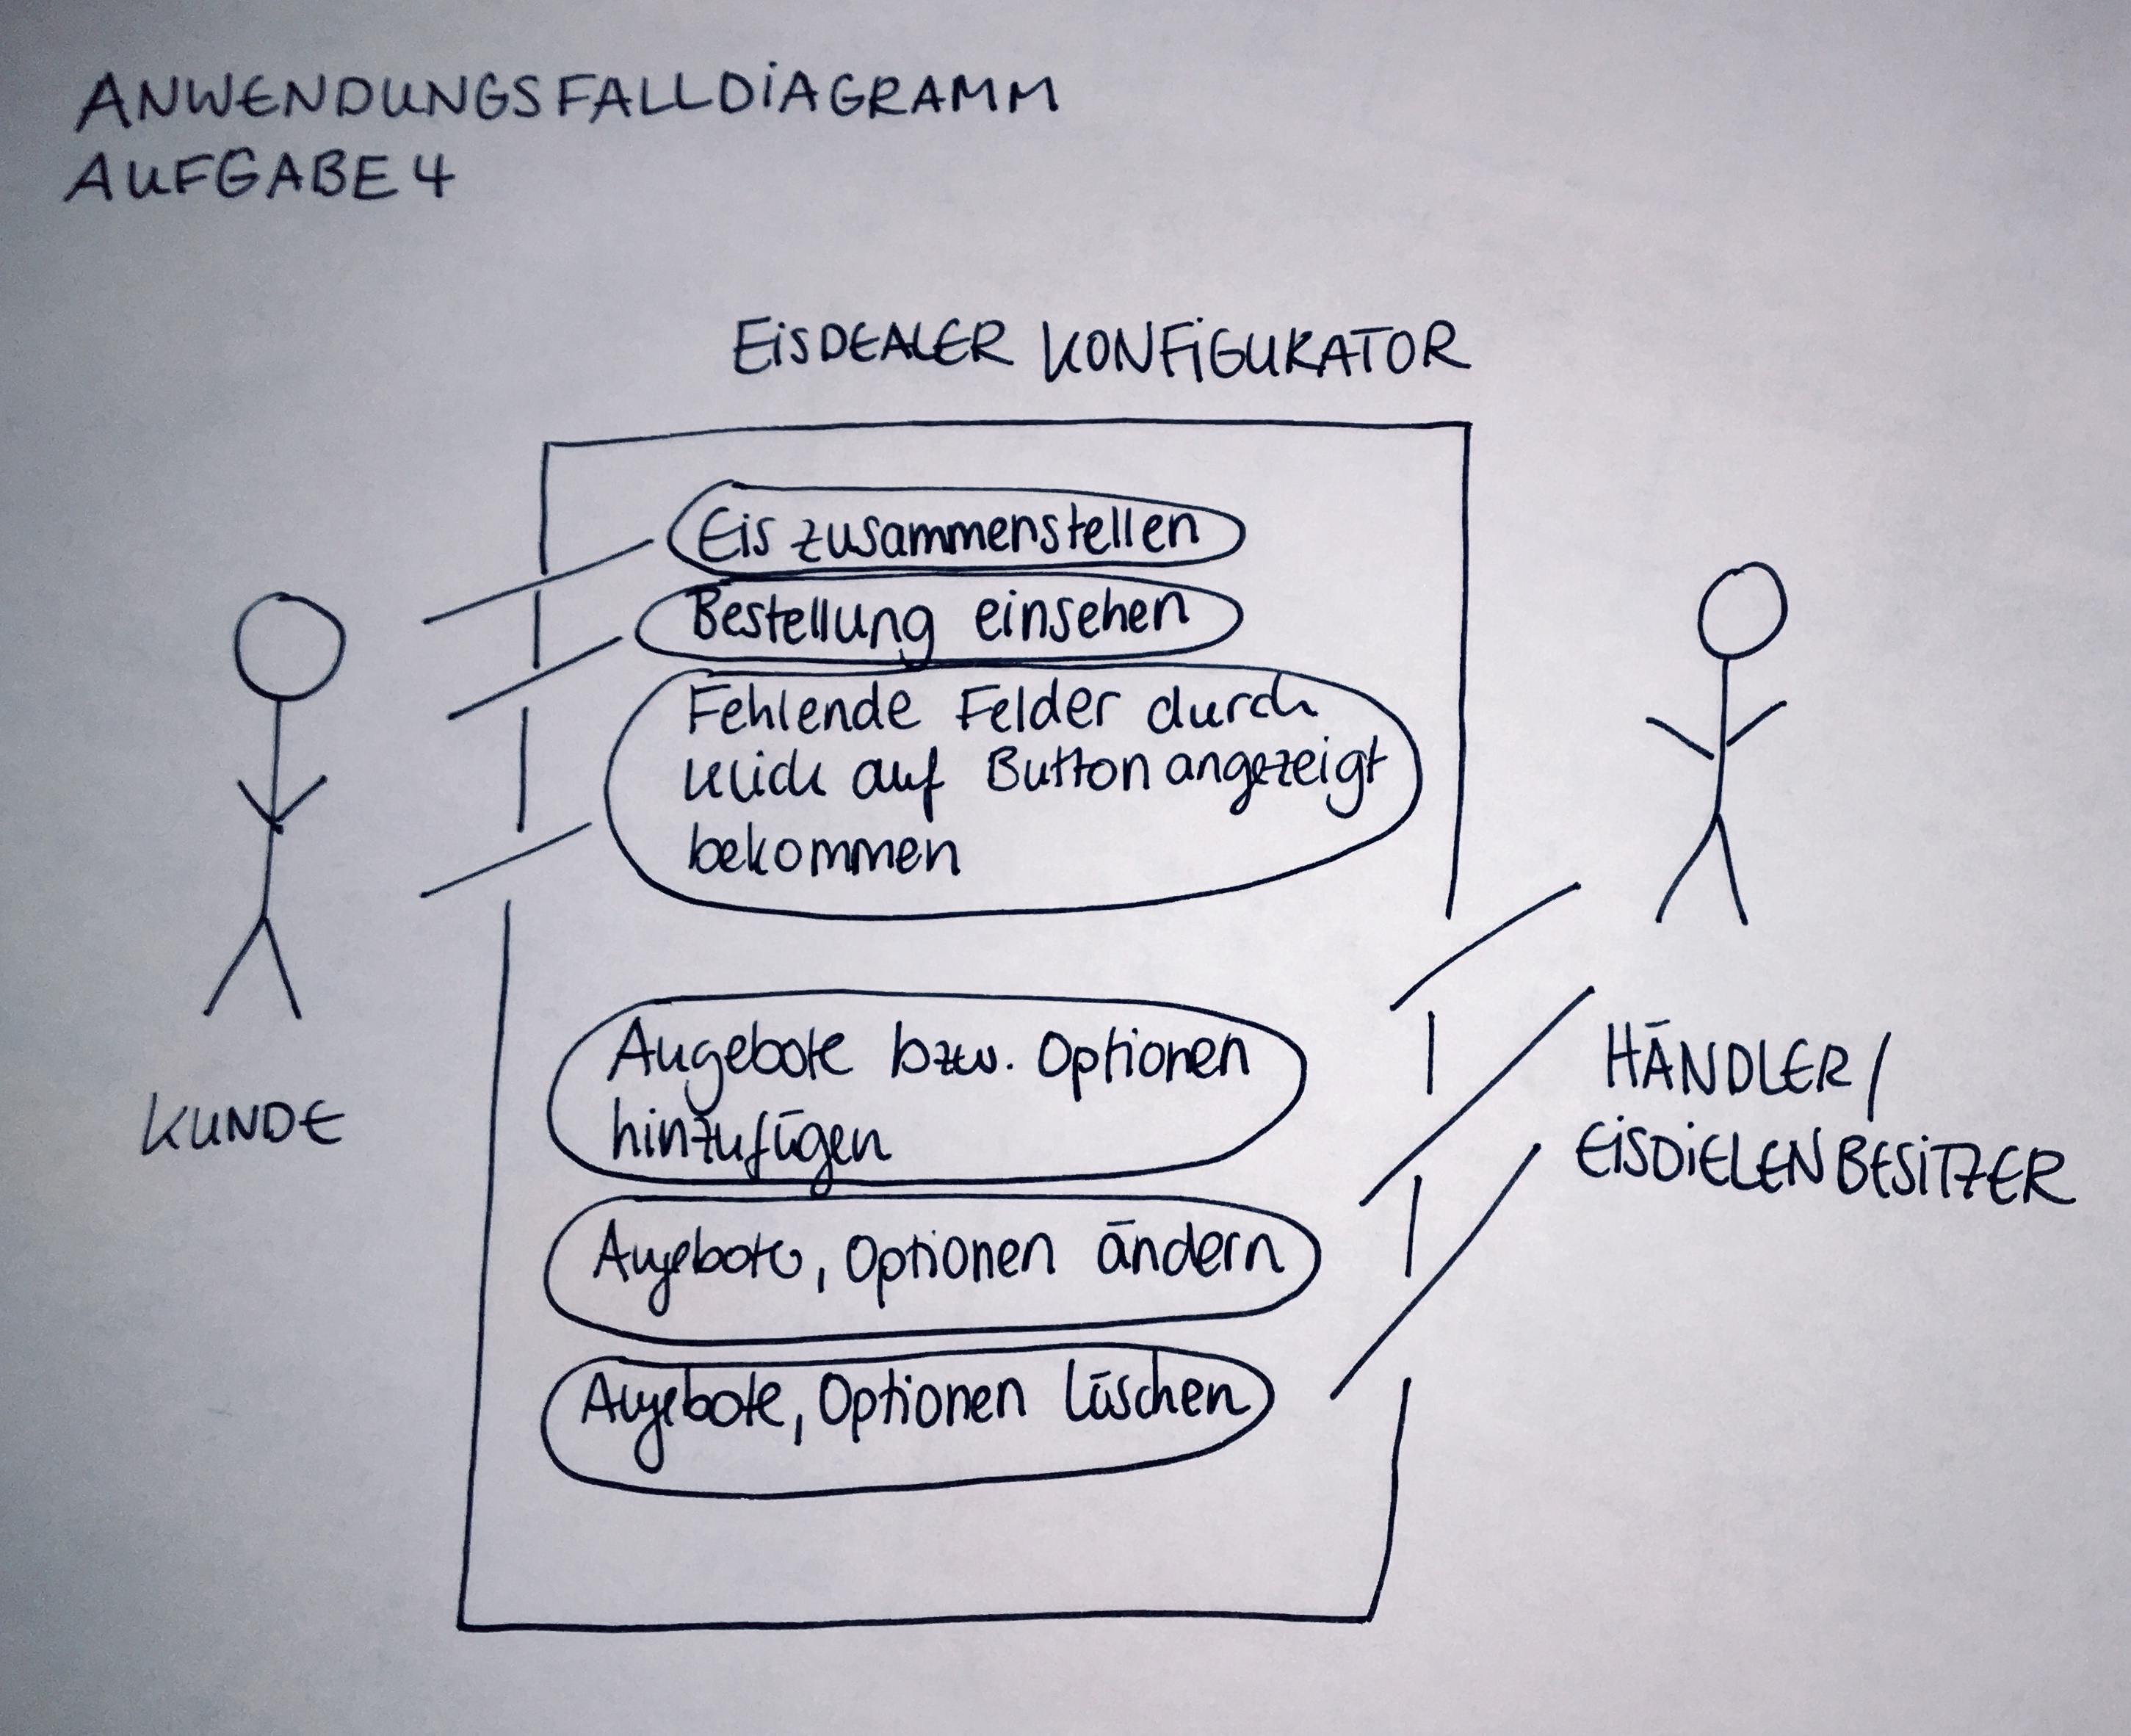 ANWENDUNGSFALLDIAGRAMM
AUFGABE 4
EISDEALER KONFIGURATOR
Eis zusammenstellen
Bestellung einsehen
Fehlende Felder durch
Klick auf Button angezeigt
bekommen
Angebote bzw. Optionen
hinzufügen
Angebote, Optionen ändern
Angebote, Optionen löschen
KUNDE
HÄNDLER/
EISDIELENBESITZER